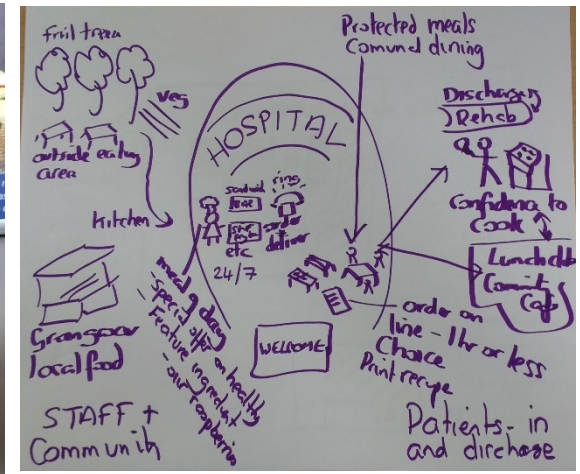 fruit trees
veg
outside eating
area
Kitchen
Grow your
local food
STAFF +
Community
HOSPITAL
sandwich
ring
order
deliver
etc
24/7
meal of day
- Special offer on healthy
- Feature ingredient
- our raspberries
WELCOME
Protected meals
Comunal dining
Discharge
Rehab
Confidence to
Cook
Lunch club
Cafe
order on
line - 1hr or less
Choice
Print recipe
Patients - in
and dircharge